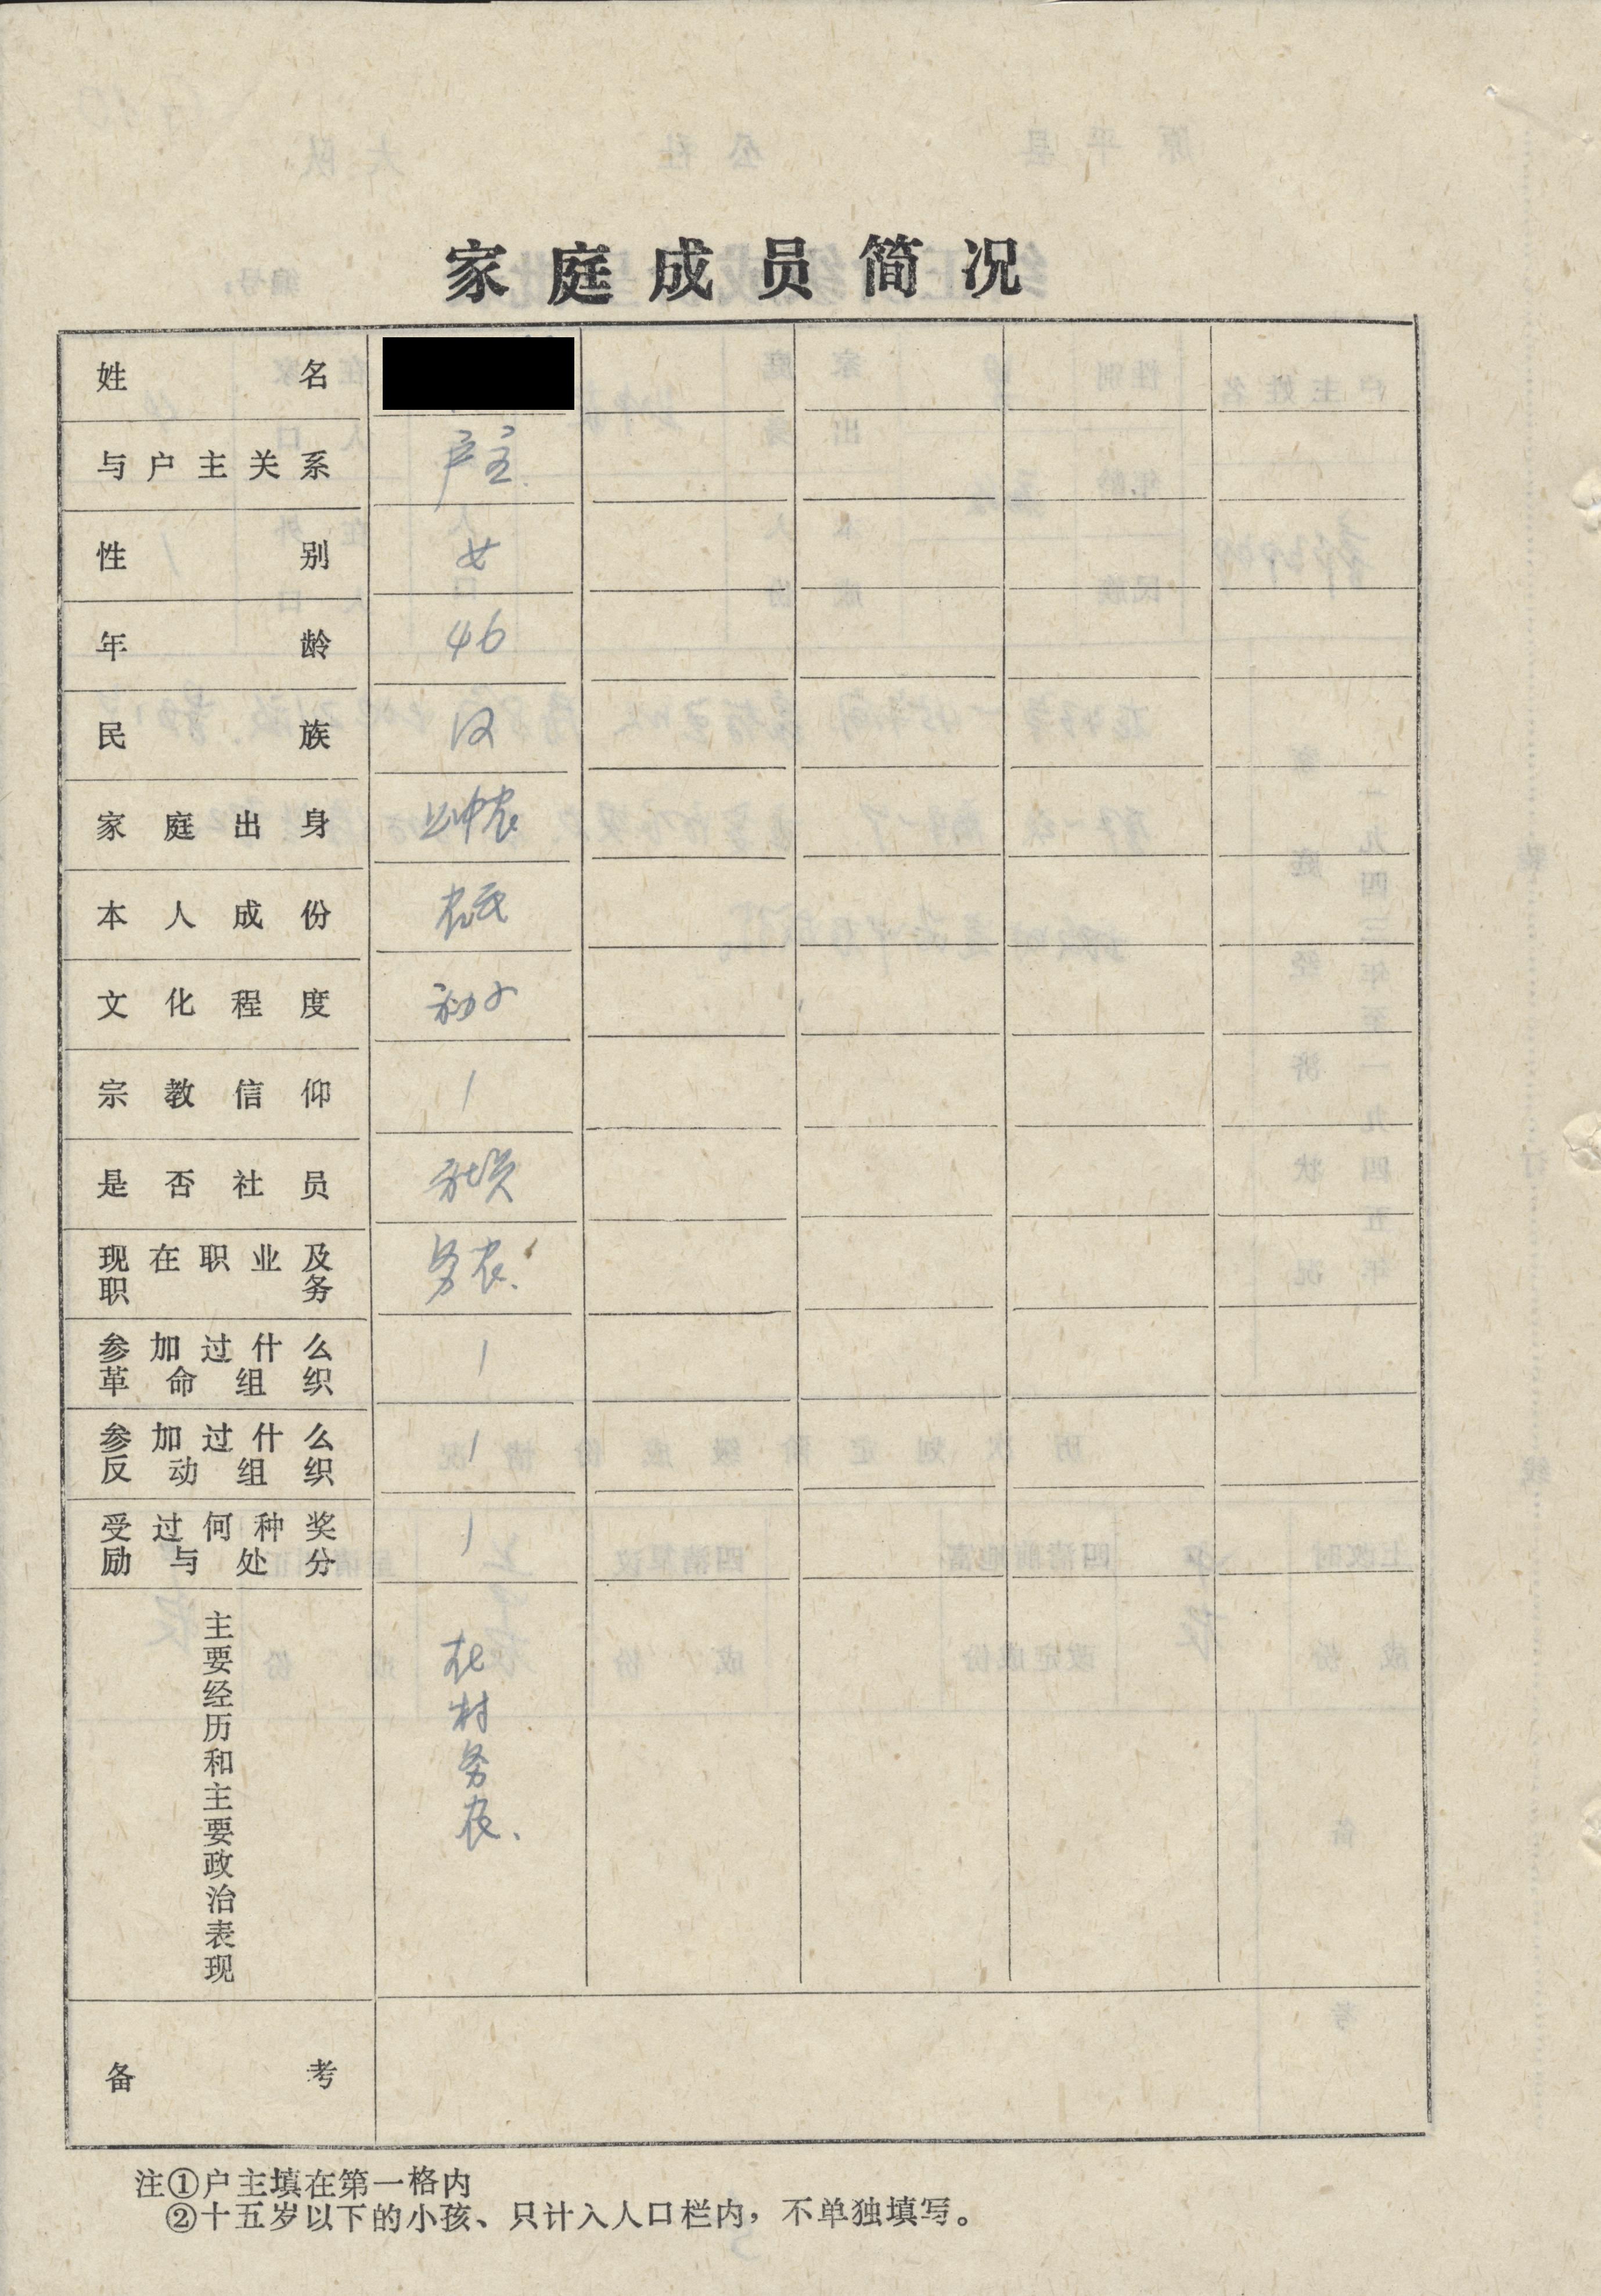 家庭成员简况
姓名
与户主关系 户主
性别 女
年龄 46
民族 汉
家庭出身 上中农
本人成份 农民
文化程度 初小
宗教信仰 /
是否社员 社员
现在职业及职务 务农、
参加过什么革命组织 /
参加过什么反动组织 /
受过何种奖励与处分 /
主要经历和主要政治表现 在村务农、
备考
注①户主填在第一格内
②十五岁以下的小孩、只计入人口栏内，不单独填写。